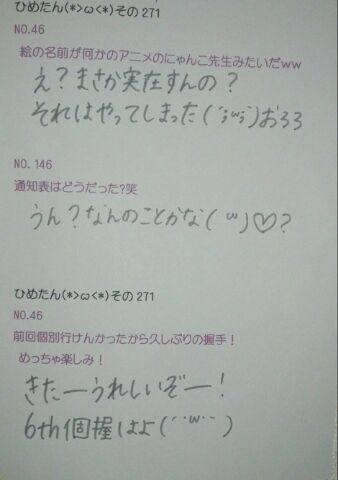 ひめたん(*>ω<*)その271
NO.46
絵の名前が何かのアニメのにゃんこ先生みたいだww
え？まさか実在すんの？
それはやってしまった(´；ω；)おろろ
NO.146
通知表はどうだった?笑
うん？なんのことかな( ω )♡？
ひめたん(*>ω<*)その271
NO.46
前回個別行けんかったから久しぶりの握手！
めっちゃ楽しみ！
きたーうれしいぞー！
6th個握はよ(´˙ω˙`)